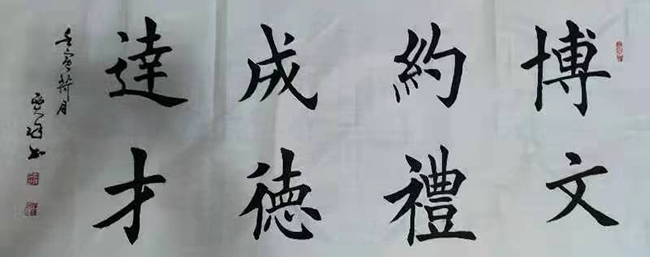 博文
約禮
成德
達才
壬寅